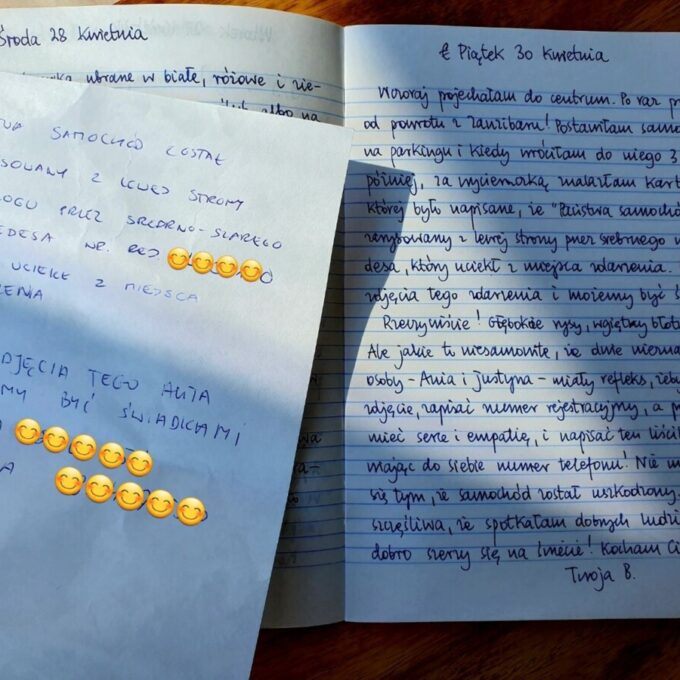 Środa 28 Kwietnia
ubrane w białe, różowe i zie-
albo na
SAMOCHÓD ZOSTAŁ
SOWANY Z LEWEJ STRONY
PRZEZ SREBRNO-SZAREGO
EDESA NR. REJ
UCIEKŁ Z MIEJSCA
ZENIA
DJĘCIA TEGO AUTA
MY BYĆ ŚWIADKAMI
Piątek 30 Kwietnia
Wczoraj pojechałam do centrum. Po raz
od powrotu z Zanzibaru! Postawiłam samo
na parkingu i kiedy wróciłam do niego 3
później, za wycieraczką znalazłam kart
której było napisane, że "Państwa samochó
zarysowany z lewej strony przez srebrnego
desa, który uciekł z miejsca zdarzenia.
zdjęcia tego zdarzenia i możemy być ś
Rzeczywiście! Głębokie rysy, wgięty błot
Ale jakie to niesamowite, że dwie niezna
osoby - Ania i Justyna - miały refleks, żeby
zdjęcie, zapisać numer rejestracyjny, a p
mieć serce i empatię, i napisać ten liścik
mając do siebie numer telefonu! Nie
się tym, że samochód został uszkodzony.
szczęśliwa, że spotkałam dobrych ludzi
dobro szerzy się na świecie! Kocham Ci
Twoja B.